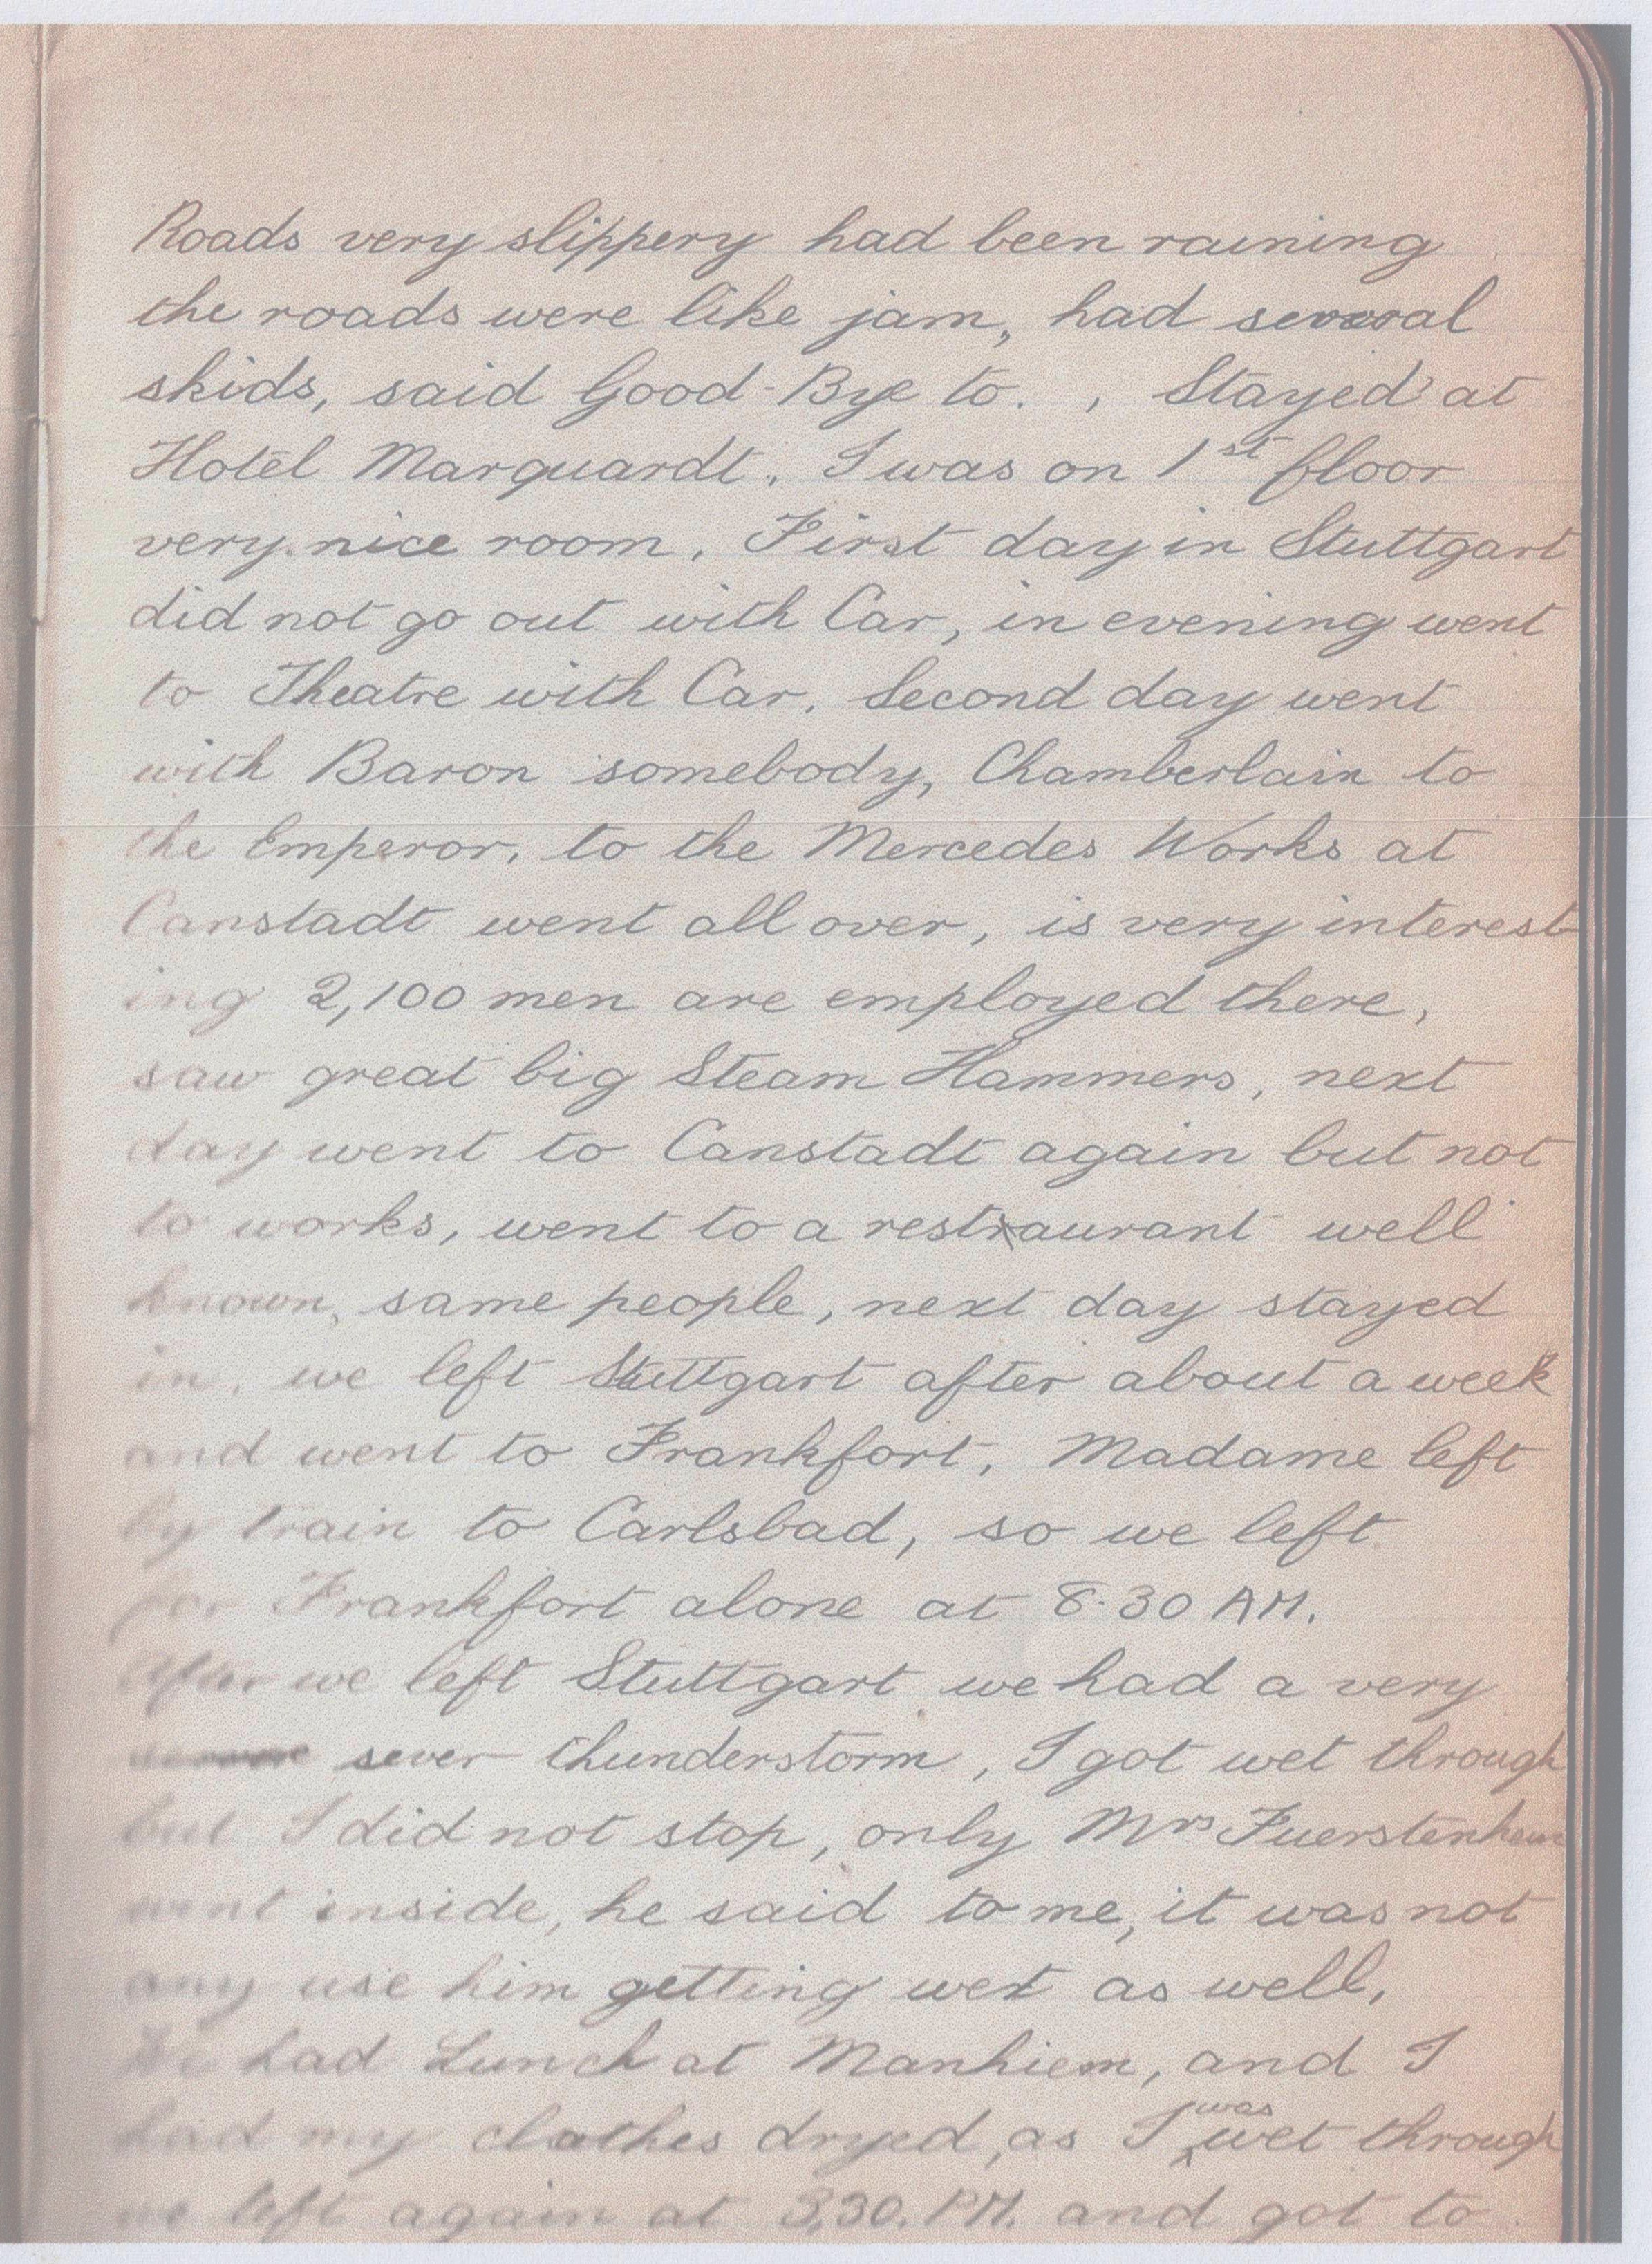 Roads very slippery had been raining
the roads were like jam, had several
skids, said Good-Bye to. , Stayed at
Hotel Marquardt. I was on 1st floor
very nice room. First day in Stuttgart
did not go out with Car, in evening went
to Theatre with Car. Second day went
with Baron somebody, Chamberlain to
the Emperor. to the Mercedes Works at
Canstadt went all over, is very interest-
ing 2,100 men are employed there,
saw great big Steam Hammers, next
day went to Canstadt again but not
to works, went to a restaurant well
known, same people, next day stayed
in, we left Stuttgart after about a week
and went to Frankfort, Madame left
by train to Carlsbad, so we left
for Frankfort alone at 8.30 AM.
After we left Stuttgart we had a very
sever thunderstorm, I got wet through
but I did not stop, only Mrs Fuerstenheim
went inside, he said to me, it was not
any use him getting wet as well,
We had Lunch at Manhiem, and I
had my clothes dryed, as I was wet through
we left again at 3.30. PM. and got to